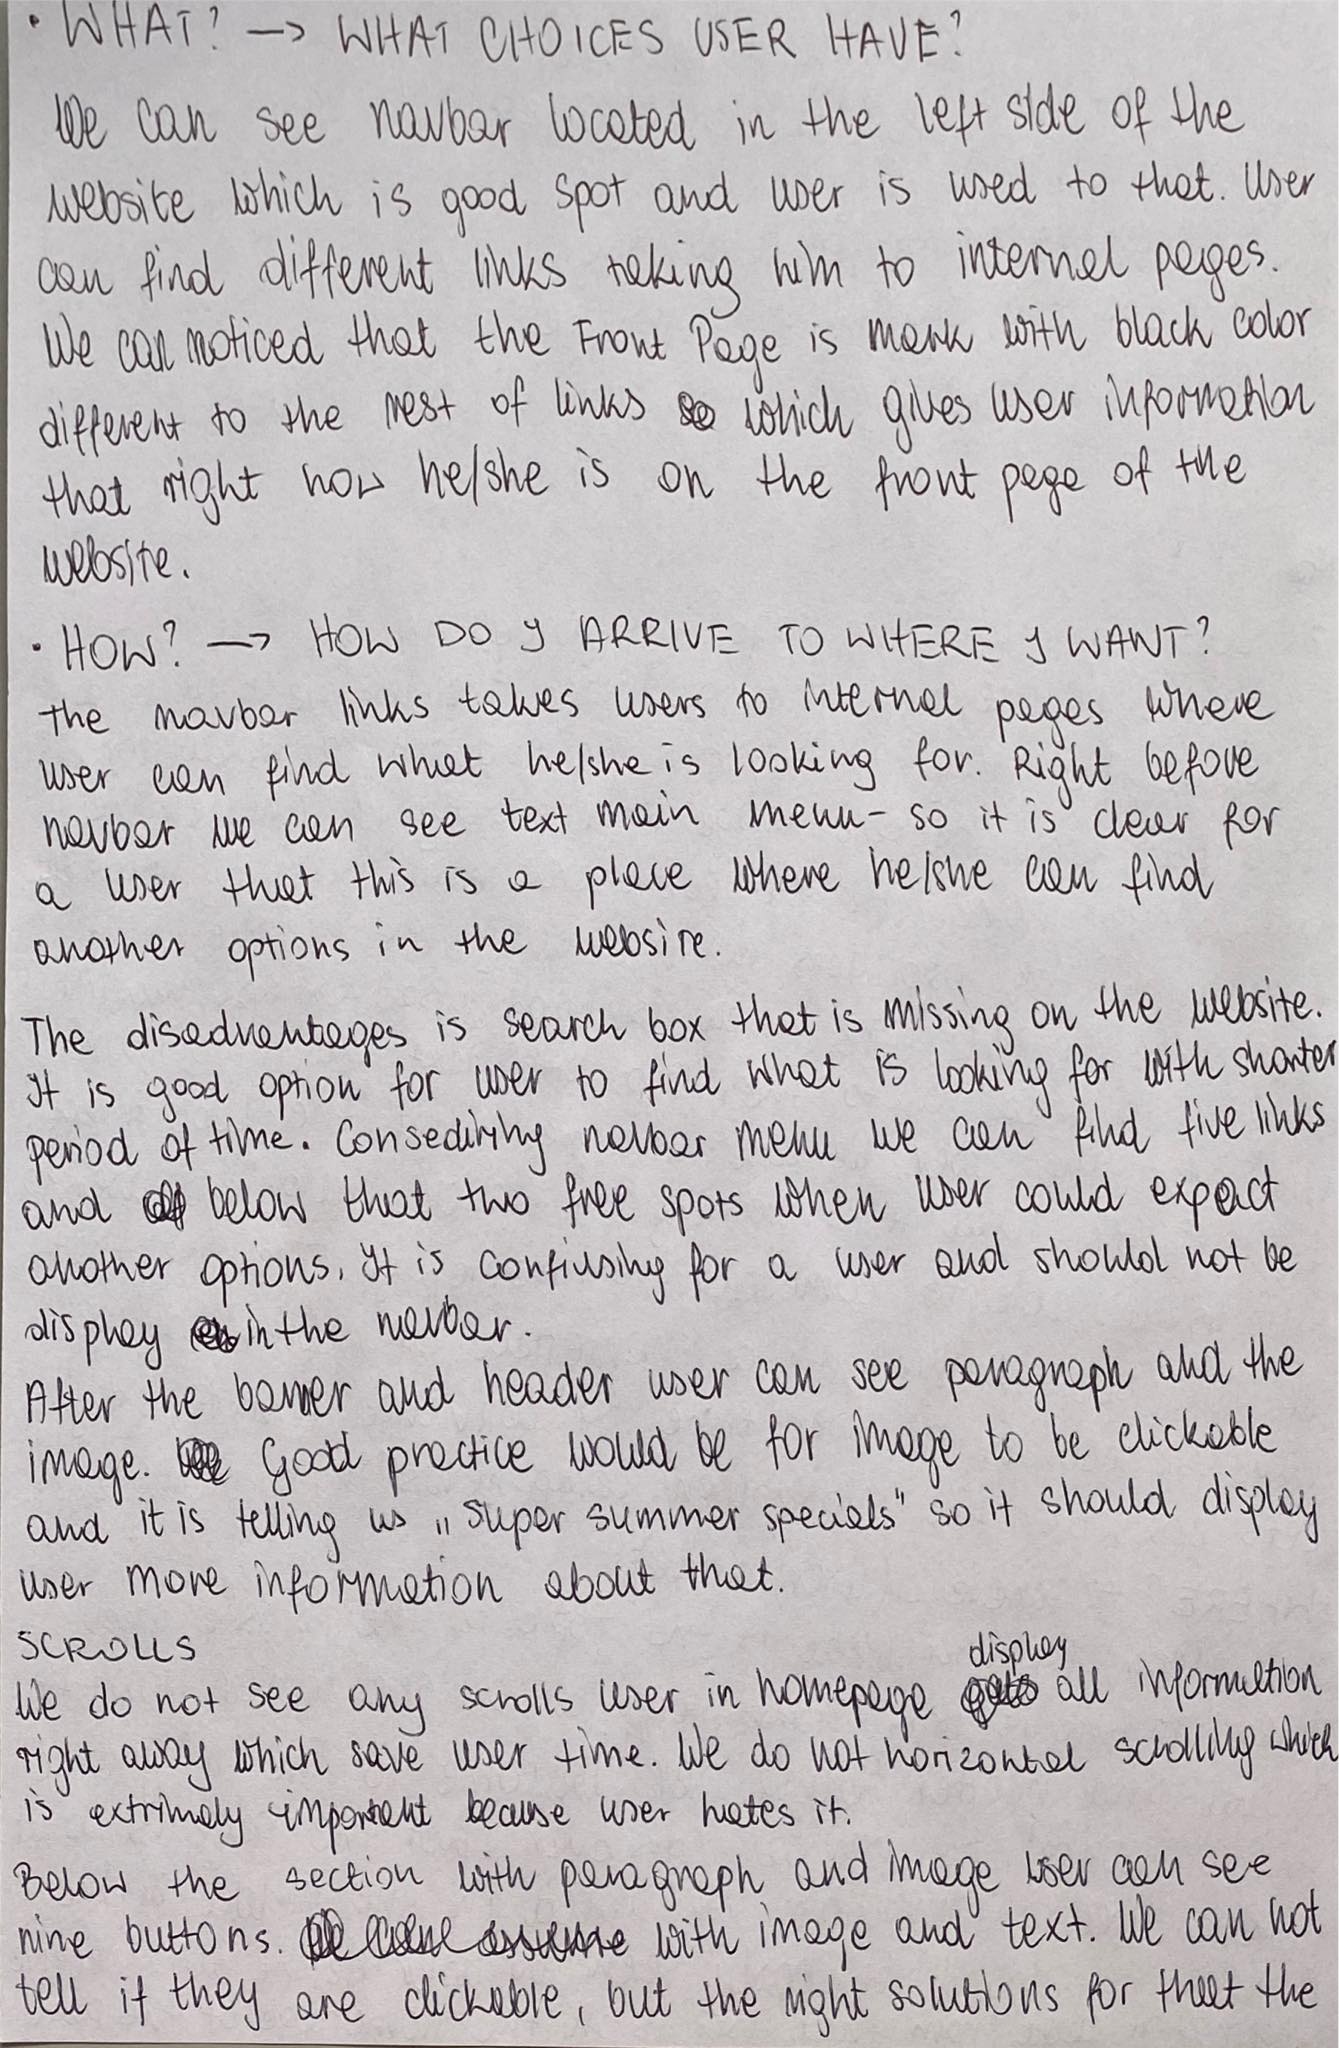 • WHAT? → WHAT CHOICES USER HAVE?
We can see navbar located in the left side of the
website which is good spot and user is used to that. User
can find different links taking him to internal pages.
We can noticed that the Front Page is mark with black color
different to the rest of links which gives user information
that right now he/she is on the front page of the
website.
• HOW? → HOW DO I ARRIVE TO WHERE I WANT?
The navbar links takes users to internal pages where
user can find what he/she is looking for. Right before
navbar we can see text main menu - so it is clear for
a user that this is a place where he/she can find
another options in the website.
The disadvantages is search box that is missing on the website.
It is good option for user to find what is looking for with shorter
period of time. Consediring navbar menu we can find five links
and below that two free spots when user could expect
another options. It is confiusing for a user and should not be
display in the navbar.
After the banner and header user can see paragraph and the
image. Good practice would be for image to be clickable
and it is telling us „Super summer specials" so it should display
user more information about that.
SCROLLS
display
We do not see any scrolls user in homepage all information
right away which save user time. We do not horizontal scrolling which
is extrimely important because user hates it.
Below the section with paragraph and image user can see
nine buttons. with image and text. We can not
tell if they are clickable, but the right solutions for that the